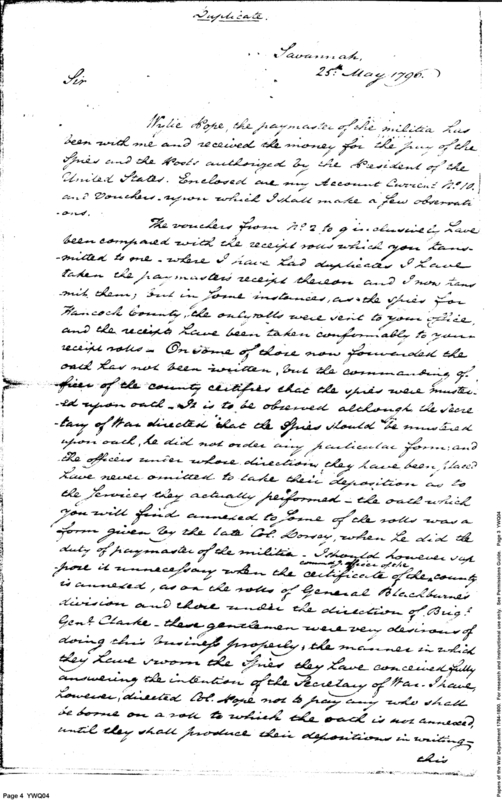 Duplicate.
Savannah.
25th May 1796.
Sir
Wylie Pope, the paymaster of the militia has
been with me and received the money for the pay of the
Spies and the Posts authorized by the President of the
United States. Enclosed are my Account Current No 10.
and Vouchers. upon which I shall make a few observati
ons.
The vouchers from No 2 to 9 inclusive, have
been compared with the receipt rolls which you trans-
mitted to me - where I have had duplicates I have
taken the paymasters receipt thereon and I now trans
mit them; but in some instances, as the Spies for
Hancock County, the only rolls were sent to your office,
and the receipts have been taken conformably to your
receipt rolls - On some of those now forwarded the
oath has not been written, but the commanding of
ficer of the county certifies that the spies were muster-
ed upon oath - It is to be observed although the Secre
tary of War directed that the Spies should be mustered
upon oath, he did not order any particular form, and
the officers under whose direction they have been placed
have never omitted to take their deposition as to
the Services they actually performed - the oath which
you will find annexed to some of the rolls was a
form given by the late Col. Dorsey, when he did the
duty of paymaster of the militia - I should however sup
pose it unnecessary when the certificate of the county
comdg officer of the
is annexed, as on the rolls of General Blackburne's
division and those under the direction of Brigr
Genl Clarke - these gentlemen were very desirous of
doing this business properly, the manner in which
they have sworn the Spies they have conceived fully
answering the intention of the Secretary of War. I have,
however, directed Col. Pope not to pay any who shall
be borne on a roll to which the oath is not annexed,
until they shall produce their depositions in writing -
this
Page 4 YWQ04
Papers of the War Department 1784-1800. For research and instructional use only. See Permissions Guide. Page 5 YWQ04